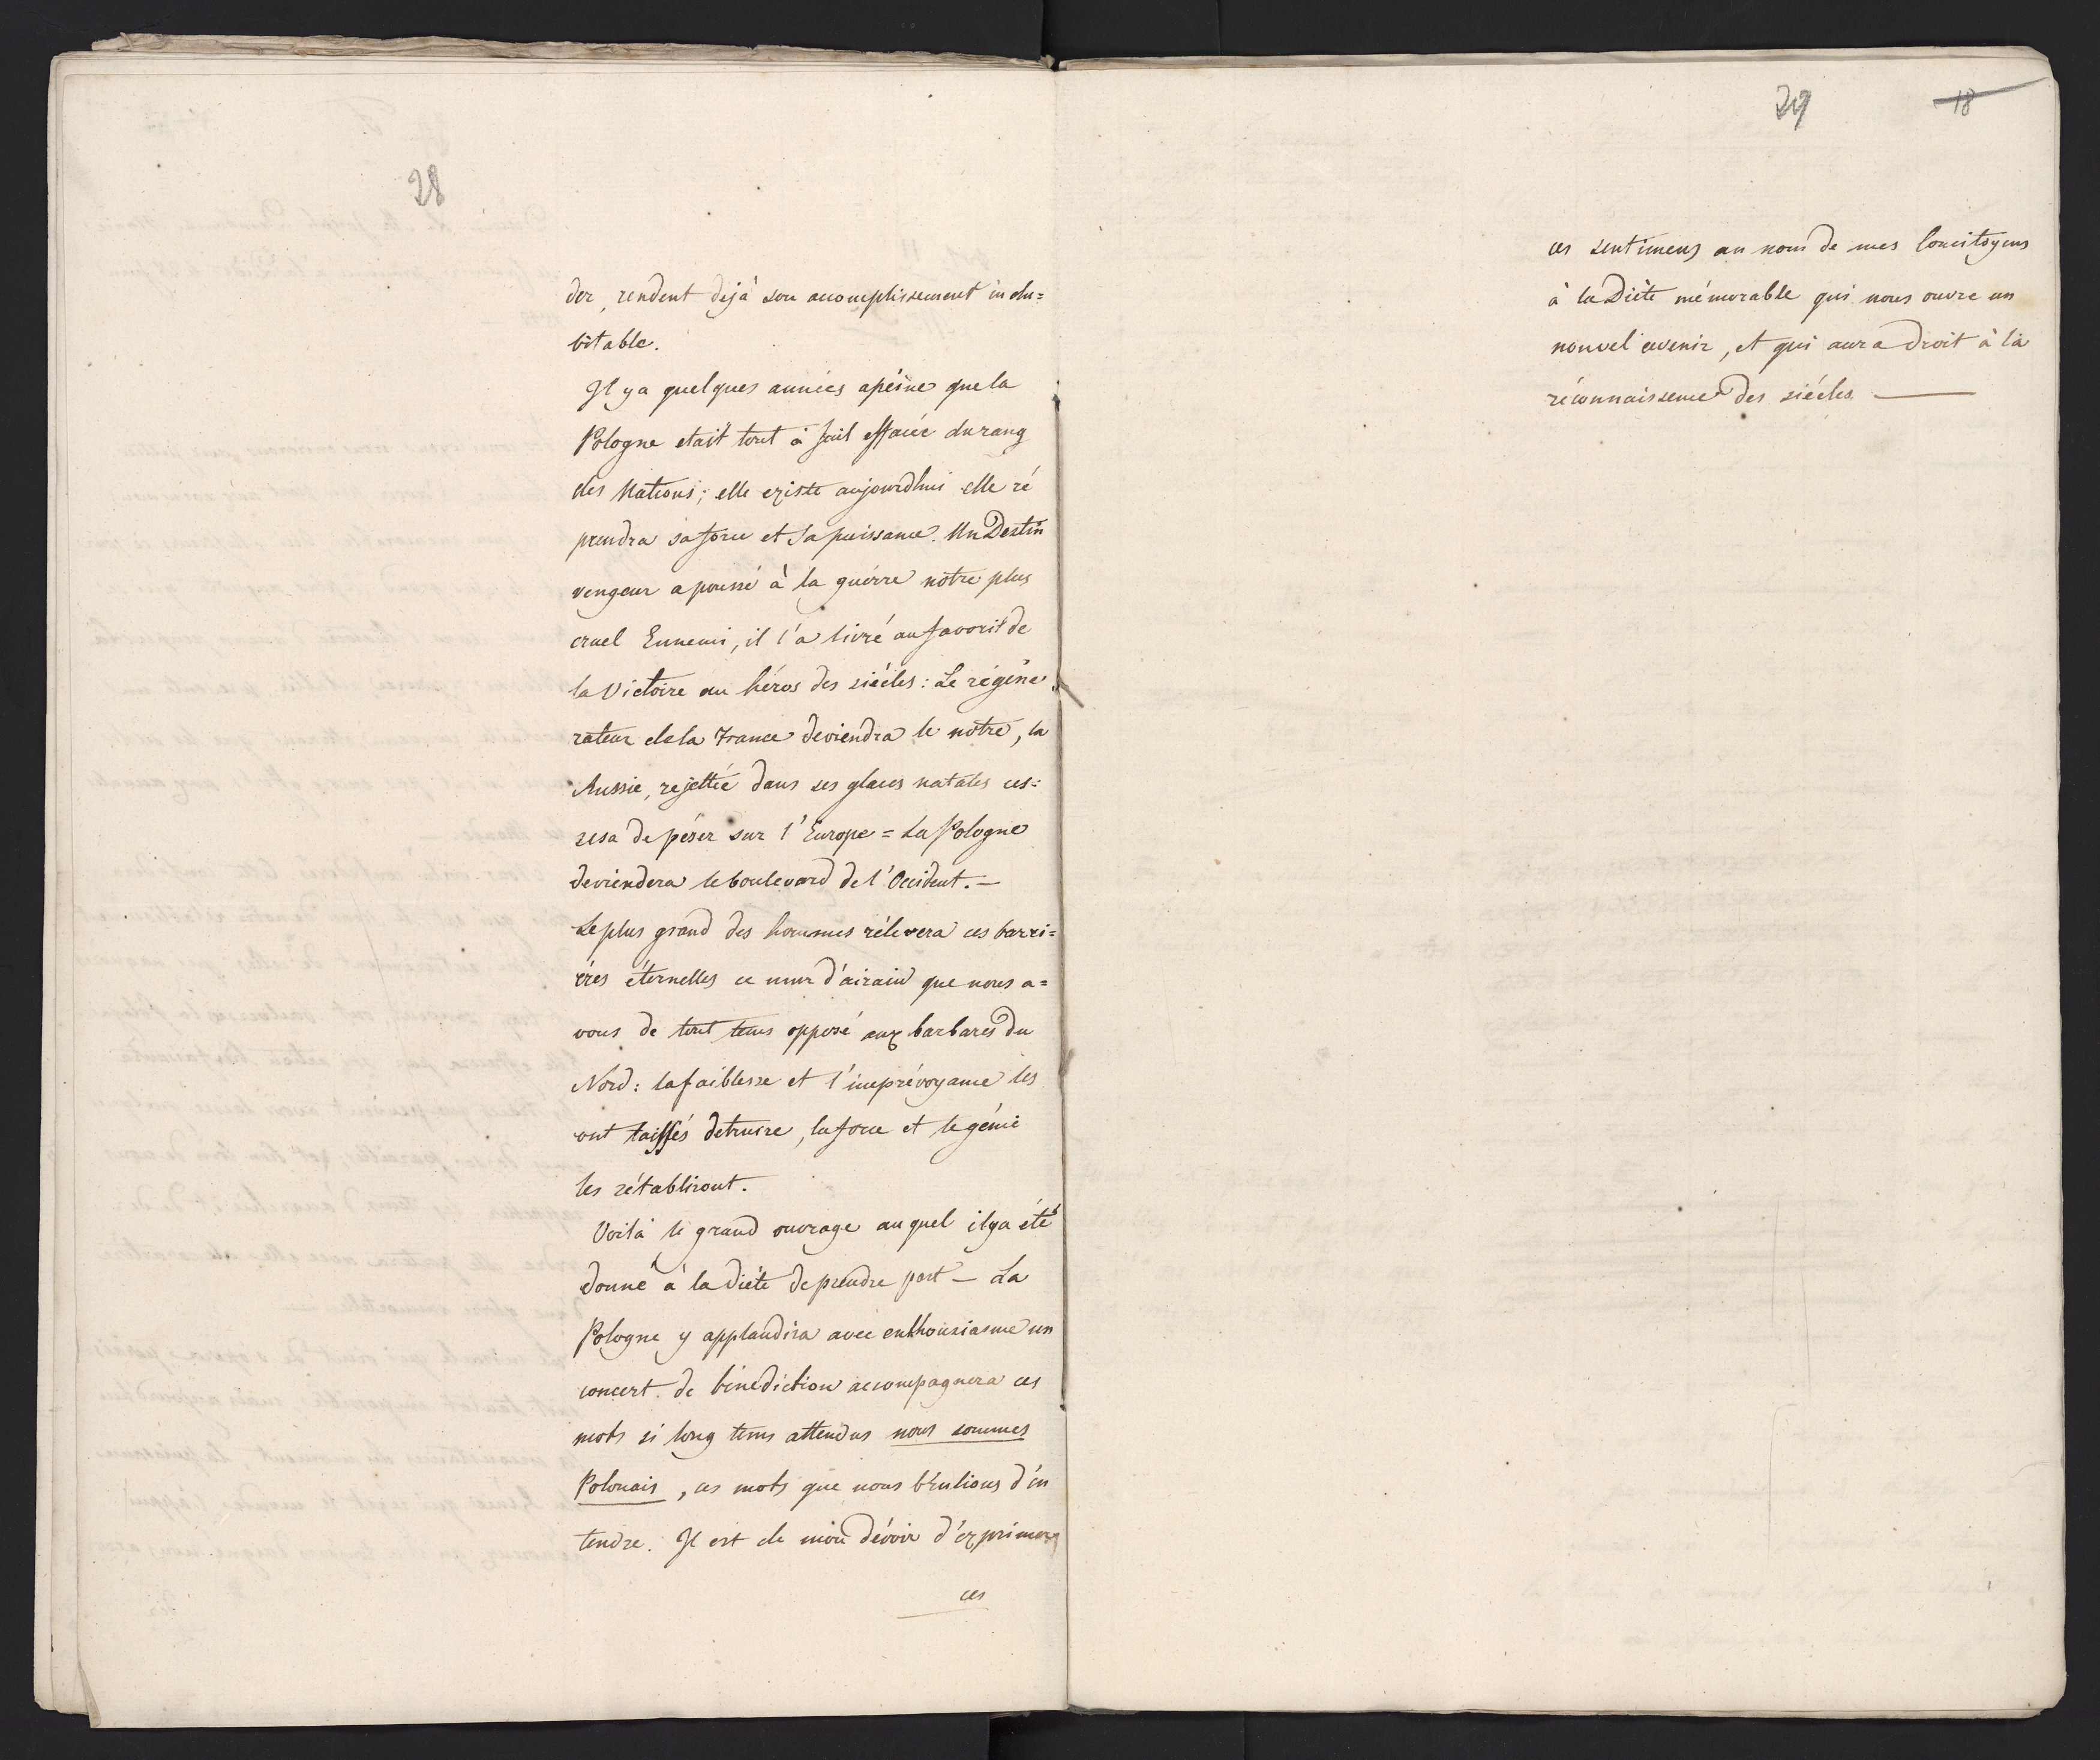 28
der, rendent dèjà son accomplissement indu=
bitable.
Il y a quelques années apéine que la
Pologne etait tout à fait effacée du rang
des Nations; elle existe aujourdhui elle ré
prendra sa force et sa puissance. Un Destin
vengeur a poussé à la guérre notre plus
cruel Ennemi, il l'a livré au favorit de
la Victoire au héros des siécles: Le régéné
rateur de la France deviendra le nôtre, la
Russie, rejettée dans ses glaces natales ces=
sesa de péser sur l'Europe = La Pologne
deviendera le boulevard de l'Occident. —
Le plus grand des hommes rélevera ces barri=
éres éternelles ce mur d'airain que nous a=
vons de tout tems opposé aux barbares du
Nord: la faiblesse et l'imprévoyance les
ont laissés detruire, la force et le génie
les rétabliront.
Voilà le grand ouvrage au quel il y a été
donné à la diéte de prendre part — La
Pologne y applaudira avec enthousiasme un
concert de bénédiction accompagnera ces
mots si long tems attendus nous sommes
Polonais, ces mots que nous brulions d'en
tendre. Il est de mon dévoir d'exprimer
ces
29 18
ces sentimens au nom de mes Concitoyens
à la Diéte mémorable qui nous ouvre un
nouvel avenir, et qui aura droit à la
réconnaissence des siécles —